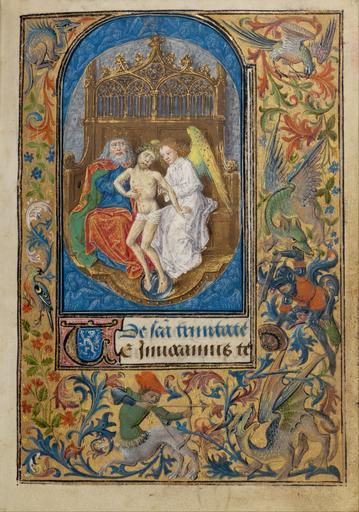 De sca trinitate
Te inuocamus te